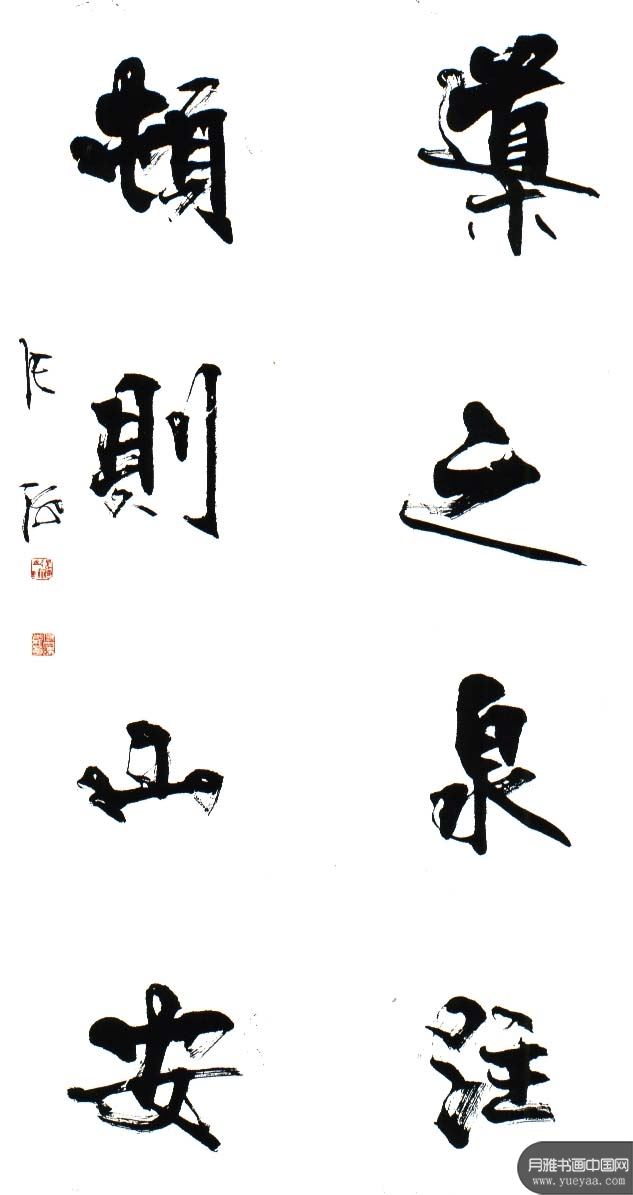 導之泉注
頓則山安
张海
月雅书画中国网
www.yueyaa.com